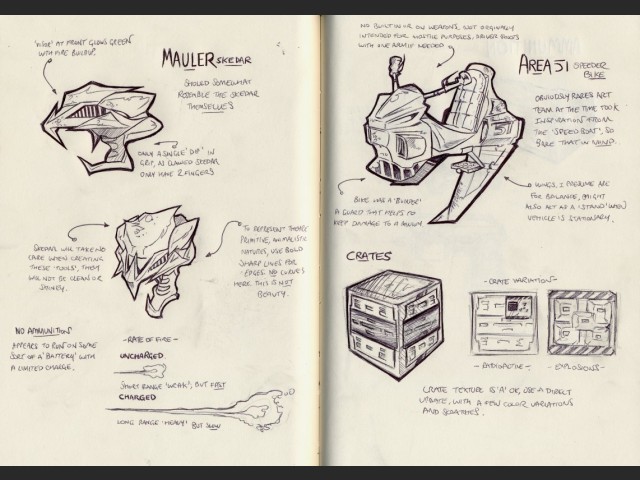 'VISOR' AT FRONT GLOWS GREEN
WITH FIRE BUILDUP.
MAULER SKEDAR
SHOULD SOMEWHAT
RESEMBLE THE SKEDAR
THEMSELVES
ONLY A SINGLE 'DIP' IN
GRIP, AS CLAWED SKEDAR
ONLY HAVE 2 FINGERS
SKEDAR WILL TAKE NO
CARE WHEN CREATING
THESE 'TOOLS', THEY
WILL NOT BE CLEAN OR
SHINEY.
TO REPRESENT THEIR
PRIMITIVE, ANIMALISTIC
NATURES, USE BOLD
SHARP LINES FOR
EDGES. NO CURVES
HERE THIS IS NOT
BEAUTY.
NO AMMUNITION
APPEARS TO RUN ON SOME
SORT OF A 'BATTERY' WITH
A LIMITED CHARGE.
-RATE OF FIRE-
UNCHARGED
SHORT RANGE 'WEAK', BUT FAST
CHARGED
LONG RANGE 'HEAVY' BUT SLOW
NO BUILT IN OR ON WEAPONS, NOT ORIGINALLY
INTENDED FOR HOSTILE PURPOSES, DRIVER SHOOTS
WITH ONE ARM IF NEEDED
AREA 51 SPEEDER
BIKE
OBVIOUSLY RARE'S ART
TEAM AT THE TIME TOOK
INSPIRATION FROM
THE 'SPEED BOAT', SO
BARE THAT IN MIND.
WINGS, I PRESUME ARE
FOR BALANCE, MIGHT
ALSO ACT AS A 'STAND' WHEN
VEHICLE IS STATIONARY.
BIKE HAS A 'BUMPER'
A GUARD THAT HELPS TO
KEEP DAMAGE TO A
CRATES
-CRATE VARIATION-
-RADIOACTIVE-
-EXPLOSIONS-
CRATE TEXTURE IS 'A' OK, USE A DIRECT
UPDATE, WITH A FEW COLOR VARIATIONS
AND SCRATCHES.